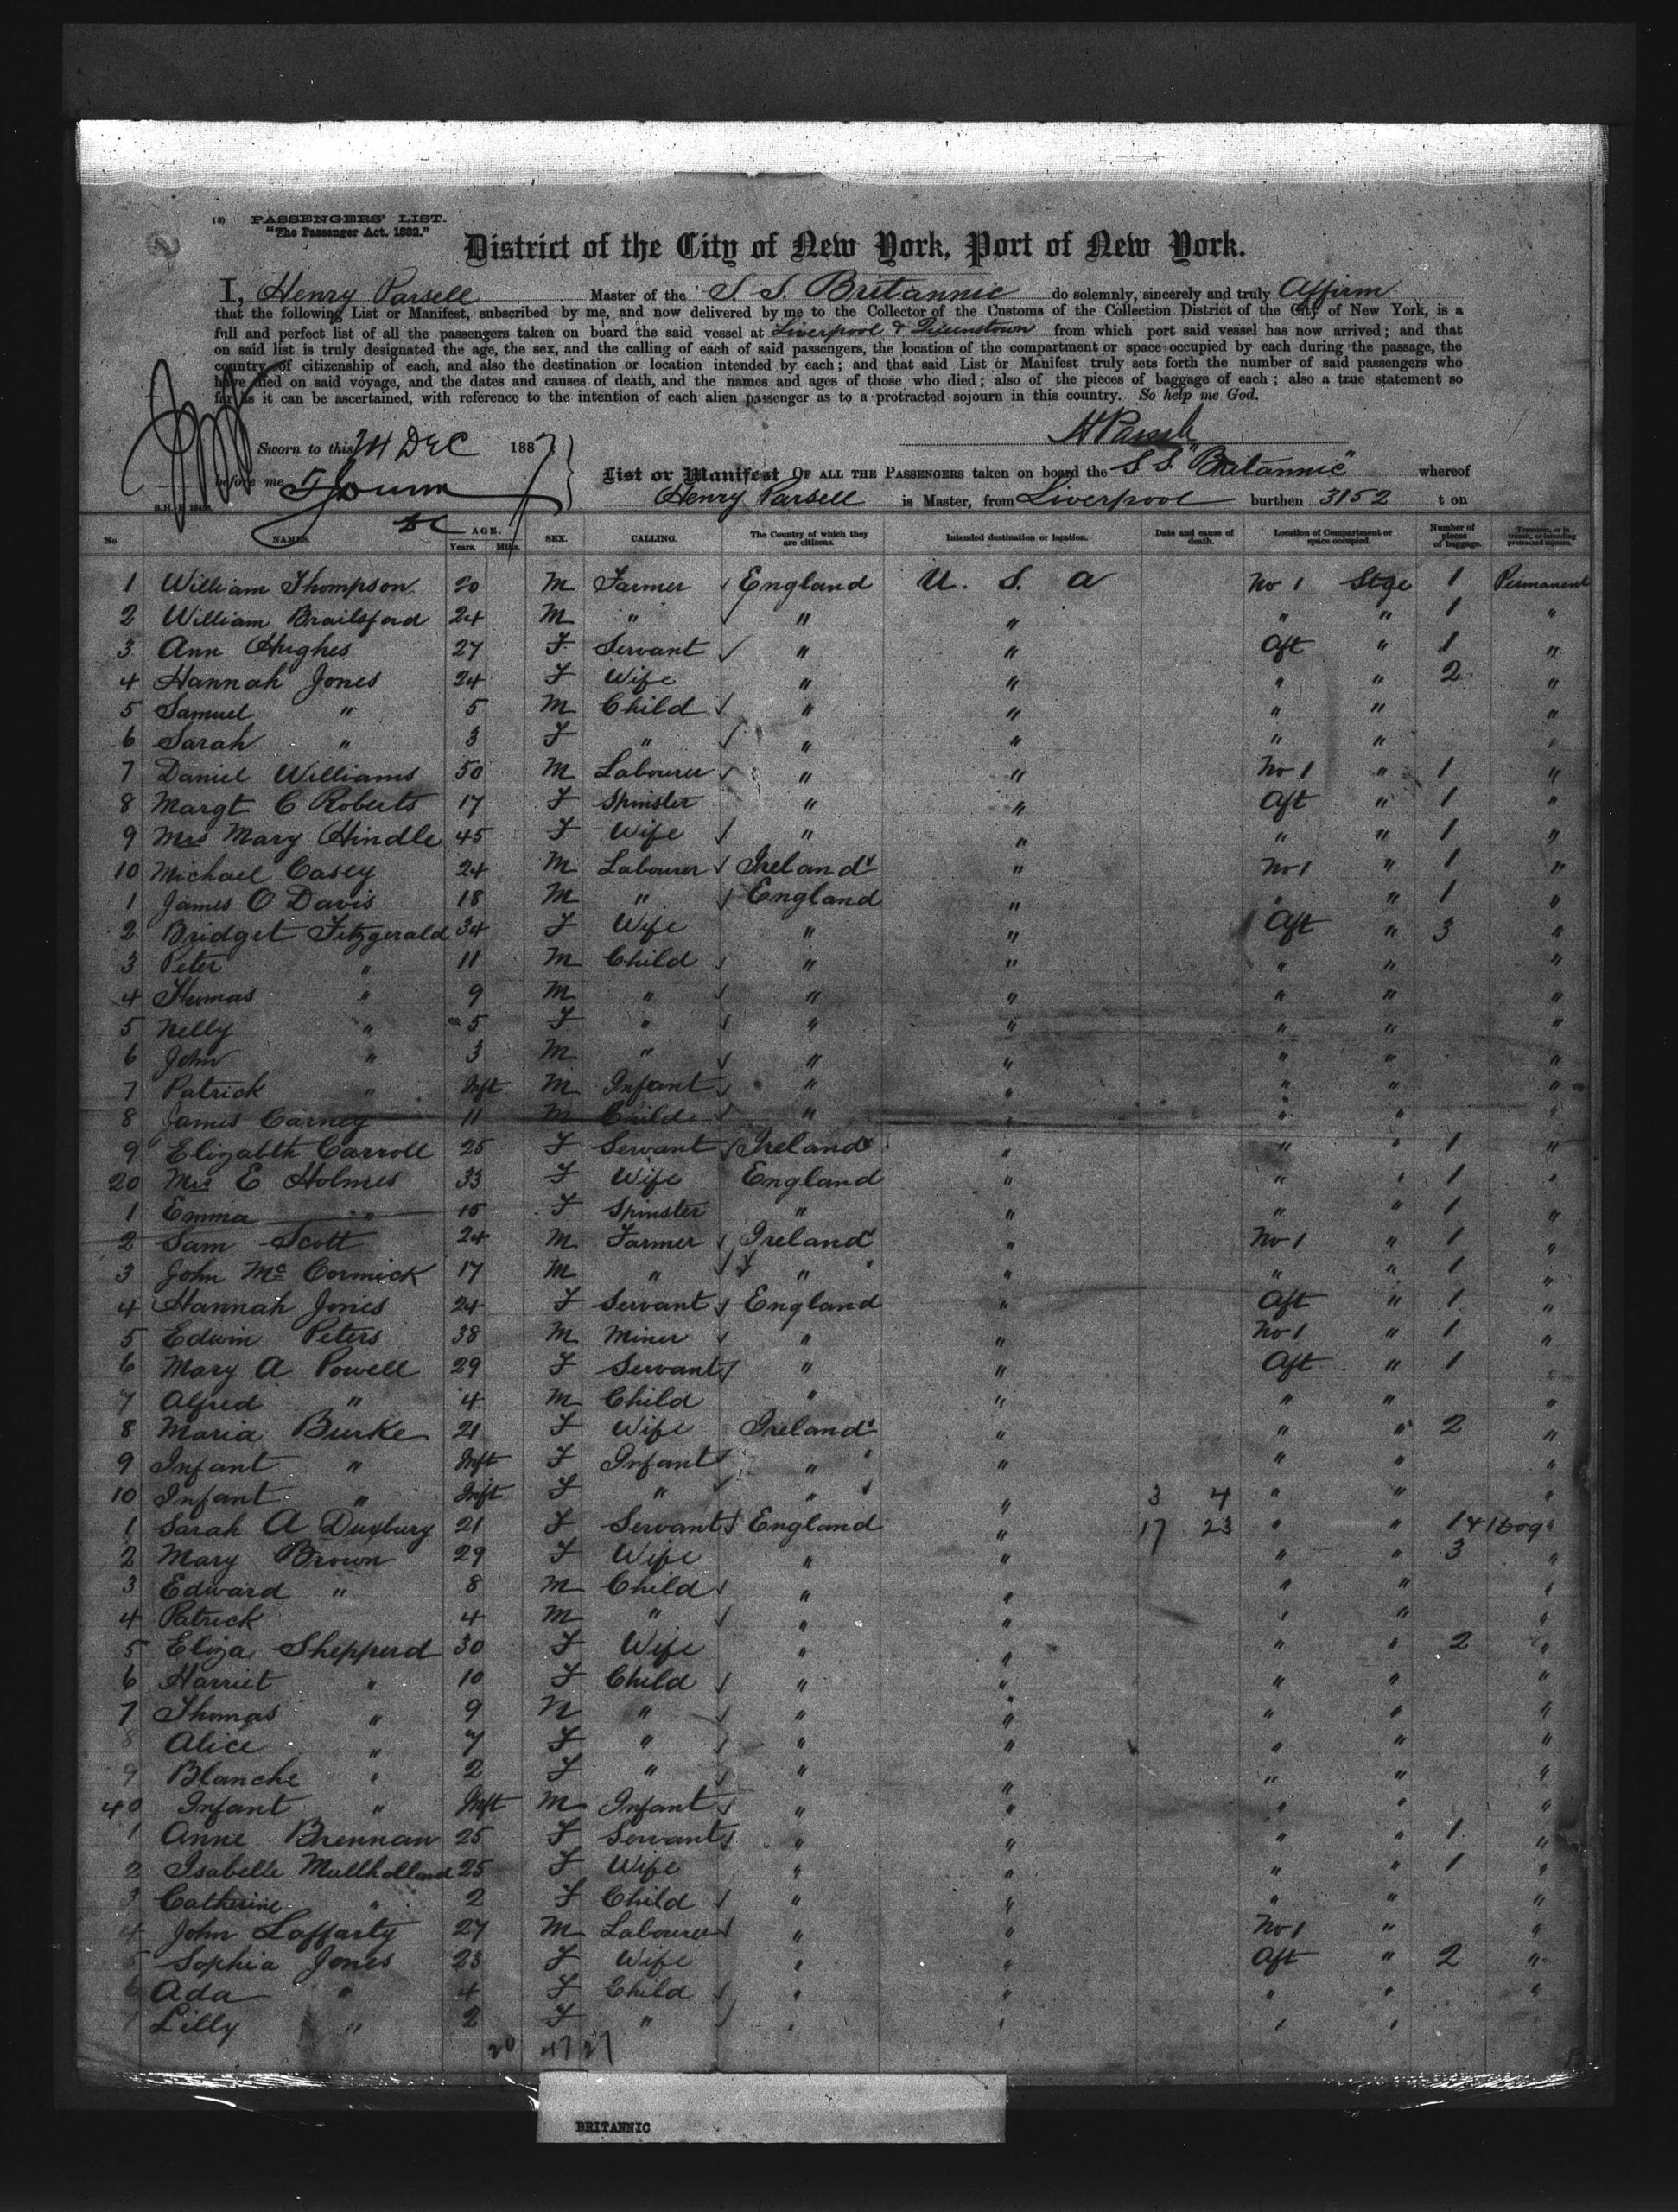 18) PASSENGERS' LIST.
"The Passenger Act. 1882."
District of the City of New York, Port of New York.
I, Henry Parsell Master of the S. S. Britannic do solemnly, sincerely and truly Affirm
that the following List or Manifest, subscribed by me, and now delivered by me to the Collector of the Customs of the Collection District of the City of New York, is a
full and perfect list of all the passengers taken on board the said vessel at Liverpool & Queenstown from which port said vessel has now arrived; and that
on said list is truly designated the age, the sex, and the calling of each of said passengers, the location of the compartment or space occupied by each during the passage, the
country of citizenship of each, and also the destination or location intended by each; and that said List or Manifest truly sets forth the number of said passengers who
have died on said voyage, and the dates and causes of death, and the names and ages of those who died; also of the pieces of baggage of each; also a true statement so
far as it can be ascertained, with reference to the intention of each alien passenger as to a protracted sojourn in this country. So help me God.
H Parsell
Sworn to this 24 DEC 1887
before me
List or Manifest OF ALL THE PASSENGERS taken on board the S S. "Britannic" whereof
Henry Parsell is Master, from Liverpool burthen 3152 t on
No NAMES. AGE. Years. Mths. SEX. CALLING. The Country of which they are citizens. Intended destination or location. Date and cause of death. Location of Compartment or space occupied. Number of pieces of baggage. Transient, or in transit, or intending protracted sojourn.
1 William Thompson 20 M Farmer England U. S. a No 1 Stge 1 Permanent
2 William Brailsford 24 M " " " " " 1 "
3 Ann Hughes 27 F Servant " " Aft " 1 "
4 Hannah Jones 24 F Wife " " " " 2 "
5 Samuel " 5 M Child " " " " "
6 Sarah " 3 F " " " " " "
7 Daniel Williams 50 M Labourer " " No 1 " 1 "
8 Margt C Roberts 17 F Spinster " " Aft " 1 "
9 Mrs Mary Hindle 45 F Wife " " " " 1 "
10 Michael Casey 24 M Labourer Ireland " No 1 " 1 "
1 James O Davis 18 M " England " " " 1 "
2 Bridget Fitzgerald 34 F Wife " " Aft " 3 "
3 Peter " 11 M Child " " " " "
4 Thomas " 9 M " " " " " "
5 Nelly " 5 F " " " " " "
6 John " 3 M " " " " " "
7 Patrick " Inft M Infant " " " " "
8 James Carney 11 M Child " " " " "
9 Elizabth Carroll 25 F Servant Ireland " " " 1 "
20 Mrs E Holmes 33 F Wife England " " " 1 "
1 Emma " 15 F Spinster " " " " 1 "
2 Sam Scott 24 M Farmer Ireland " No 1 " 1 "
3 John Mc Cormick 17 M " " " " " 1 "
4 Hannah Jones 24 F Servant England " Aft " 1 "
5 Edwin Peters 38 M Miner " " No 1 " 1 "
6 Mary A Powell 29 F Servant " " Aft " 1 "
7 Alfred " 4 M Child " " " " "
8 Maria Burke 21 F Wife Ireland " " " 2 "
9 Infant " Inft F Infant " " " " "
10 Infant " Inft F " " " 3 4 " " "
1 Sarah A Duxbury 21 F Servant England " 17 23 " " 1 & 1 Dog "
2 Mary Brown 29 F Wife " " " " 3 "
3 Edward " 8 M Child " " " " "
4 Patrick 4 M " " " " " "
5 Eliza Shepperd 30 F Wife " " " " 2 "
6 Harriet " 10 F Child " " " " "
7 Thomas " 9 M " " " " " "
8 Alice " 7 F " " " " " "
9 Blanche " 2 F " " " " " "
40 Infant " Inft M Infant " " " " "
1 Anne Brennan 25 F Servant " " " " 1 "
2 Isabelle Mullholland 25 F Wife " " " " 1 "
3 Catherine " 2 F Child " " " " "
4 John Laffarty 27 M Labourer " " No 1 " "
5 Sophia Jones 23 F Wife " " Aft " 2 "
6 Ada " 4 F Child " " " " "
Lilly " 2 F " " " " "
20 47 27
BRITANNIC